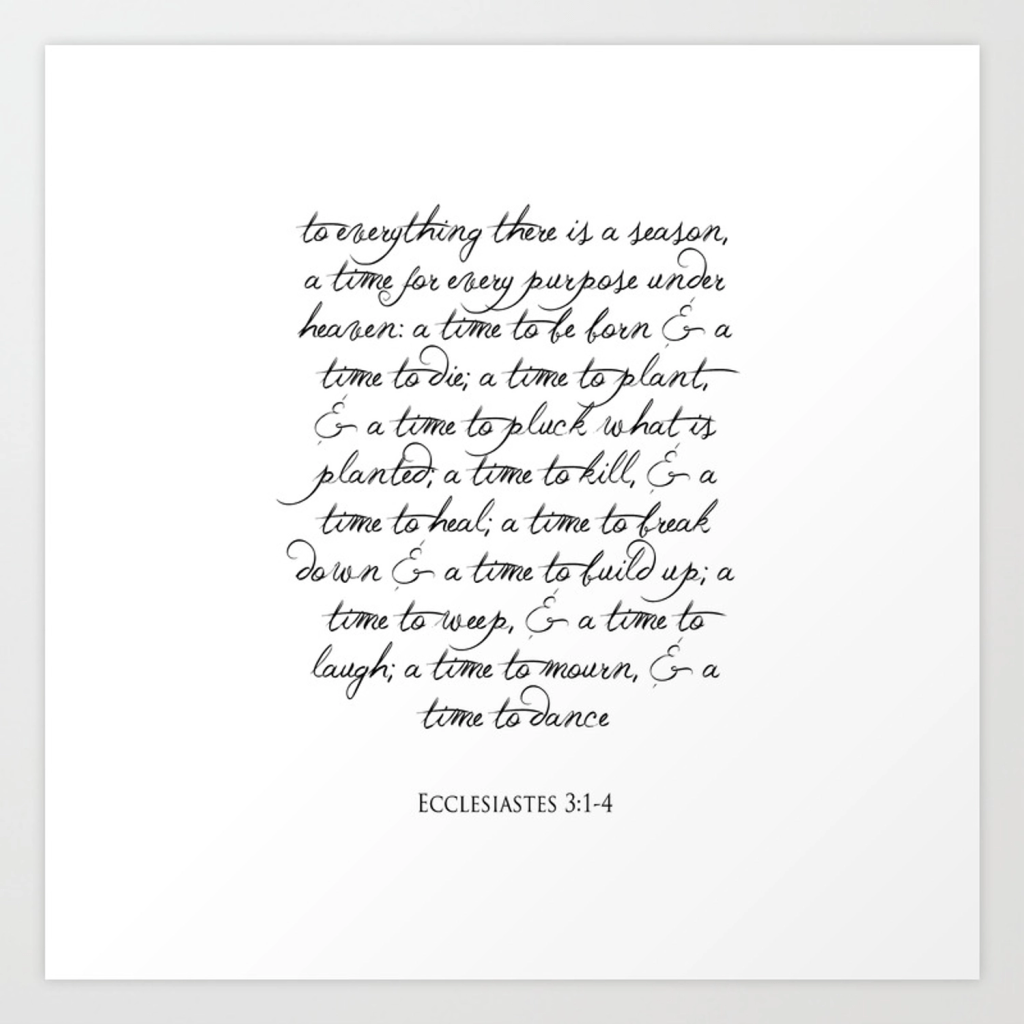 to everything there is a season,
a time for every purpose under
heaven: a time to be born & a
time to die; a time to plant,
& a time to pluck what is
planted; a time to kill, & a
time to heal; a time to break
down & a time to build up; a
time to weep, & a time to
laugh; a time to mourn, & a
time to dance
Ecclesiastes 3:1-4